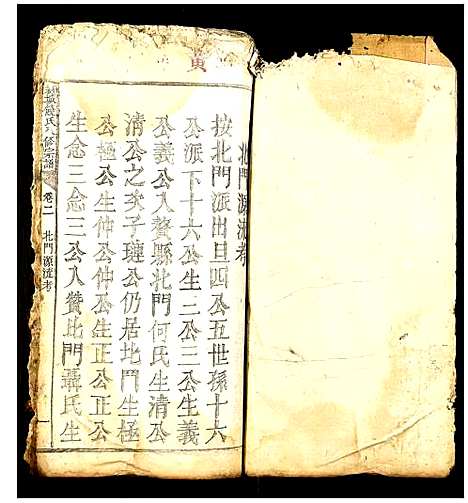 北門源流考
按北門派出旦四公五世孫十六
公派下十六公生二公三公生義
公義公入贅縣北門何氏生清公
清公之次子璉公仍居地門生極
公極公生仲公仲公生正公正公
生念三念三公入贅北門聶氏生
氏八修宗譜 卷二 北門源流考
寅